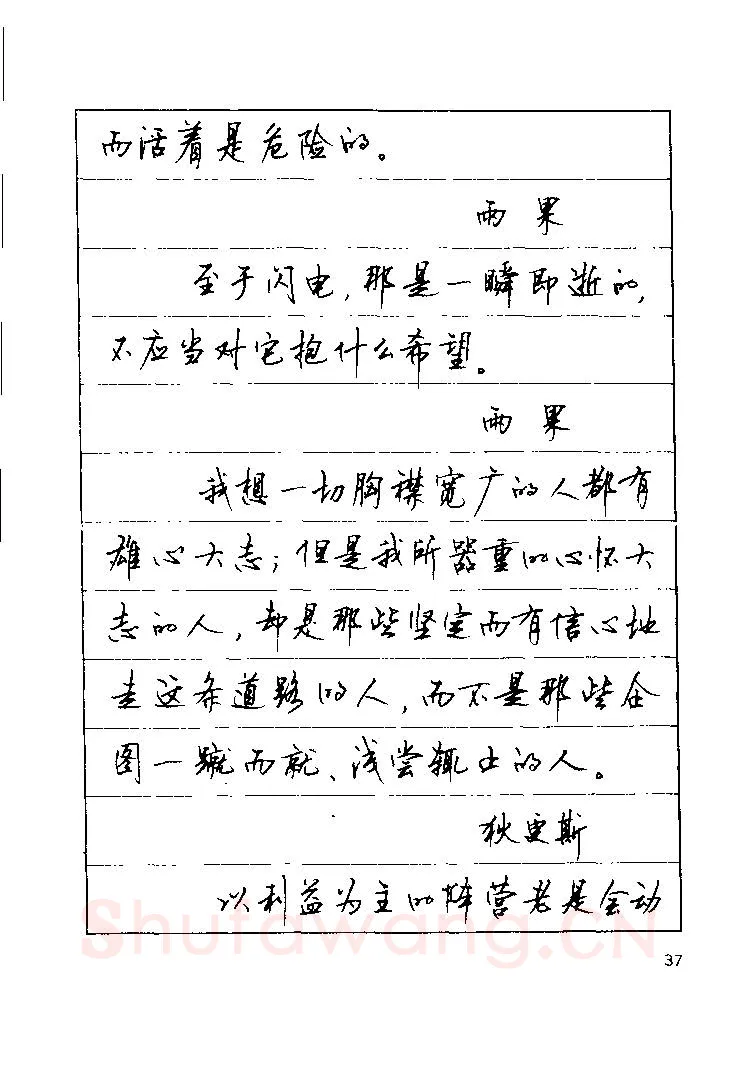 而活着是危险的。
雨果
至于闪电,那是一瞬即逝的,
不应当对它抱什么希望。
雨果
我想一切胸襟宽广的人都有
雄心大志;但是我所器重的心怀大
志的人,却是那些坚定而有信心地
走这条道路的人,而不是那些企
图一蹴而就、浅尝辄止的人。
狄更斯
以利益为主的阵营老是会动
Shufawang.CN
37